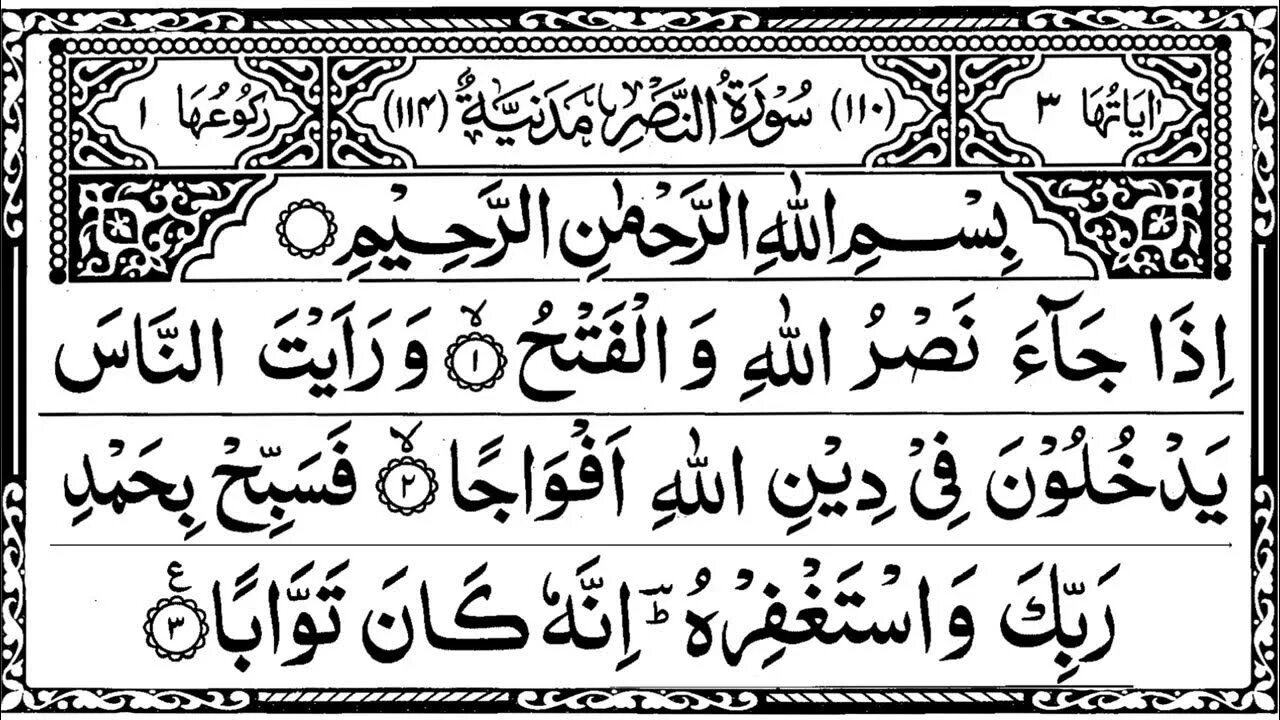 اٰیَاتُهَا ۳ (۱۱۰) سُوْرَةُ النَّصْرِ مَدَنِيَّةٌ (۱۱۴) رَكُوْعُهَا ۱
بِسْمِ اللهِ الرَّحْمٰنِ الرَّحِيْمِ
اِذَا جَآءَ نَصْرُ اللهِ وَ الْفَتْحُ ۙ﴿۱﴾ وَ رَاَيْتَ النَّاسَ
يَدْخُلُوْنَ فِيْ دِيْنِ اللهِ اَفْوَاجًا ۙ﴿۲﴾ فَسَبِّحْ بِحَمْدِ
رَبِّكَ وَ اسْتَغْفِرْهُ ؕ اِنَّهٗ كَانَ تَوَّابًا ﴿۳﴾ ع